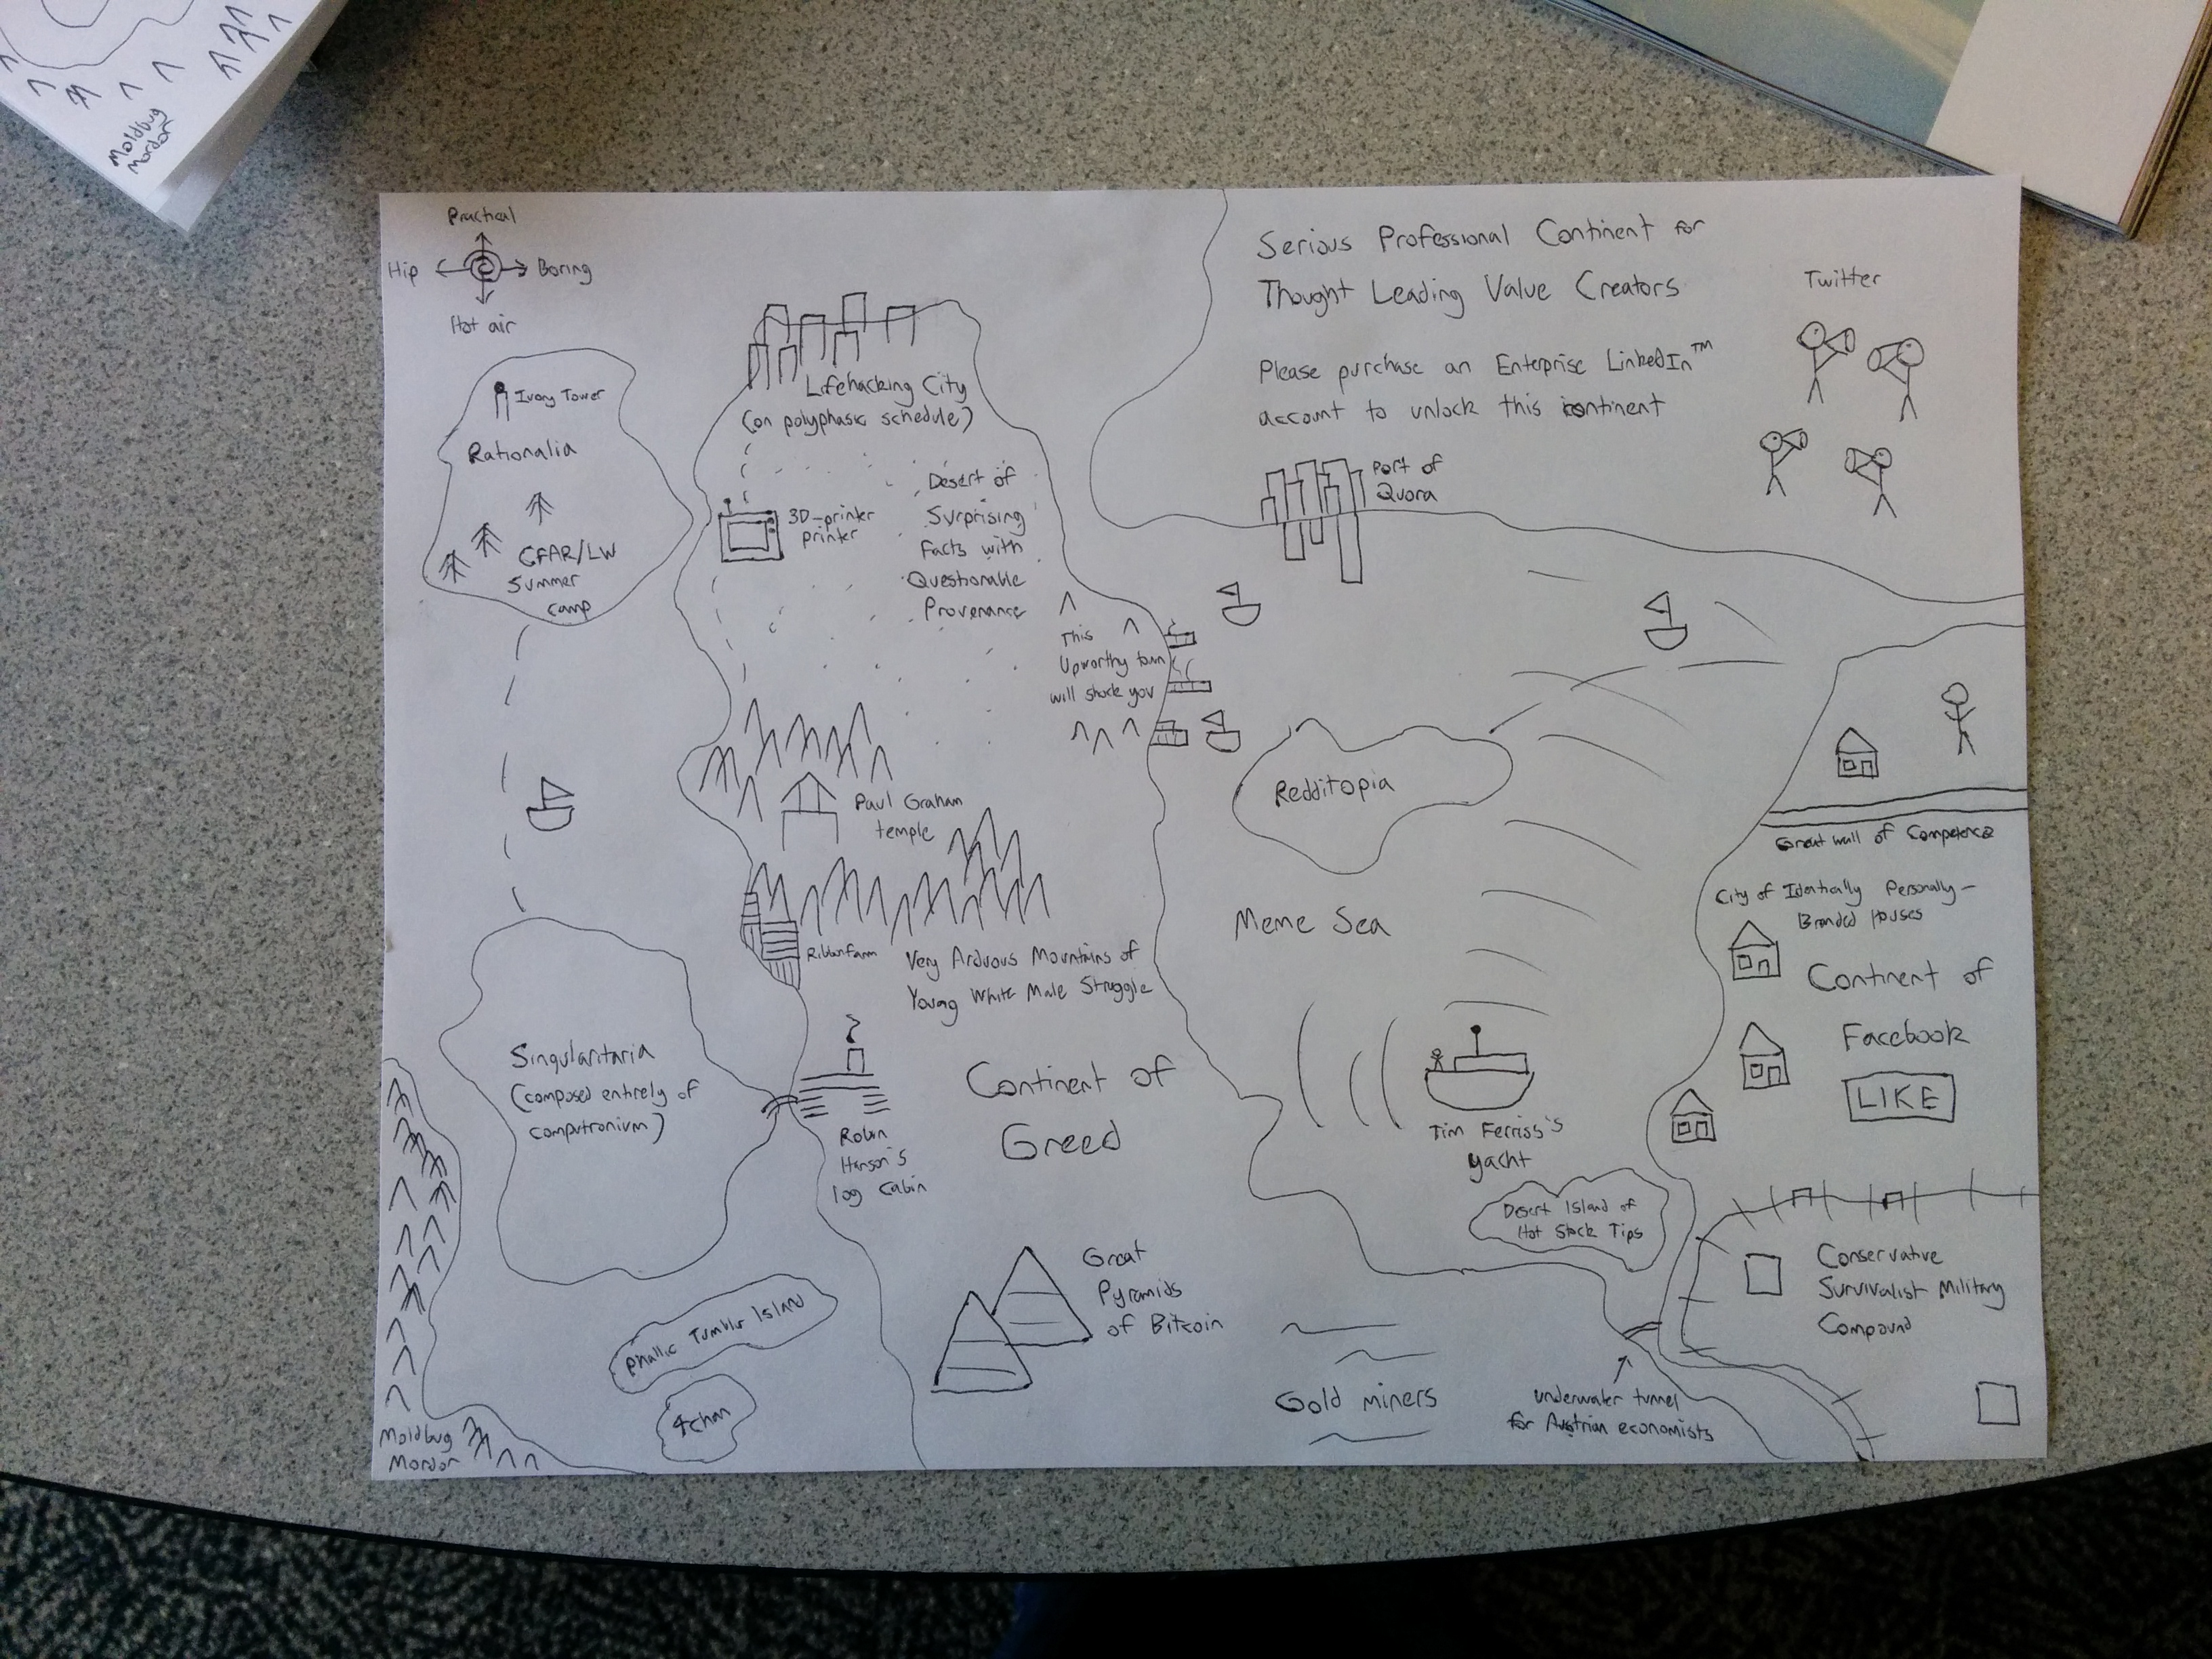 Moldbug
Mordor
Practical
Hip
Boring
Hot air
Ivory Tower
Rationalia
CFAR/LW
Summer
camp
Lifehacking City
(on polyphasic schedule)
3D-printer
printer
Desert of
Surprising
Facts with
Questionable
Provenance
This
Upworthy town
will shock you
Serious Professional Continent for
Thought Leading Value Creators
Please purchase an Enterprise LinkedIn™
account to unlock this continent
Twitter
Port of
Quora
Paul Graham
temple
Ribbonfarm
Very Arduous Mountains of
Young White Male Struggle
Redditopia
Meme Sea
Great wall of Competence
City of Identically Personally-
Branded Houses
Continent of
Facebook
LIKE
Singularitaria
(composed entirely of
computronium)
Robin
Hanson's
log cabin
Continent of
Greed
Tim Ferriss's
yacht
Desert Island of
Hot Stock Tips
Great
Pyramids
of Bitcoin
Conservative
Survivalist Military
Compound
Phallic Tumblr Island
4chan
Gold miners
underwater tunnel
for Austrian economists
Moldbug
Mordor